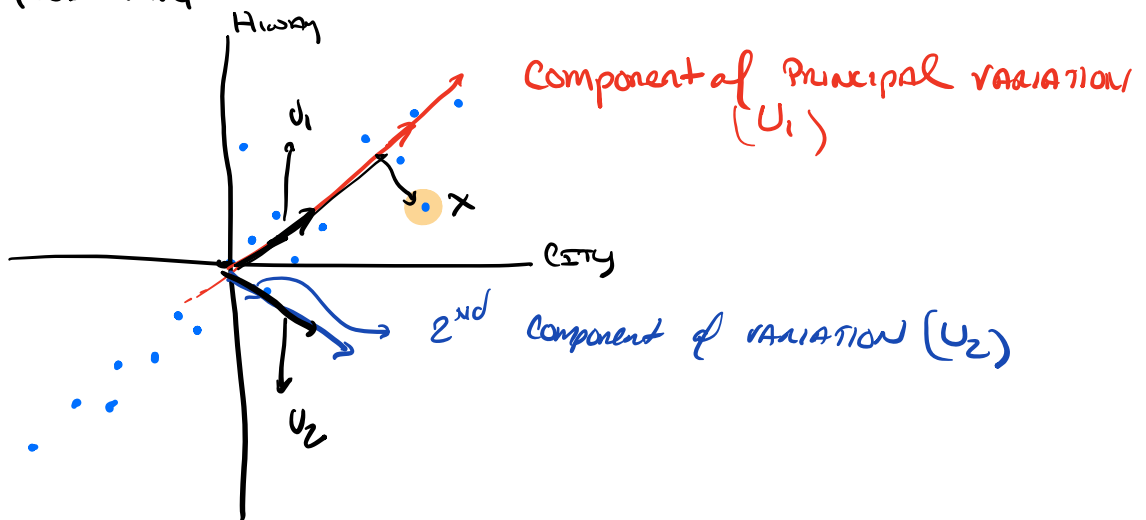 HIWAY
Component of PRINCIPAL VARIATION
(U1)
U1
X
CITY
2ND Component of VARIATION (U2)
U2